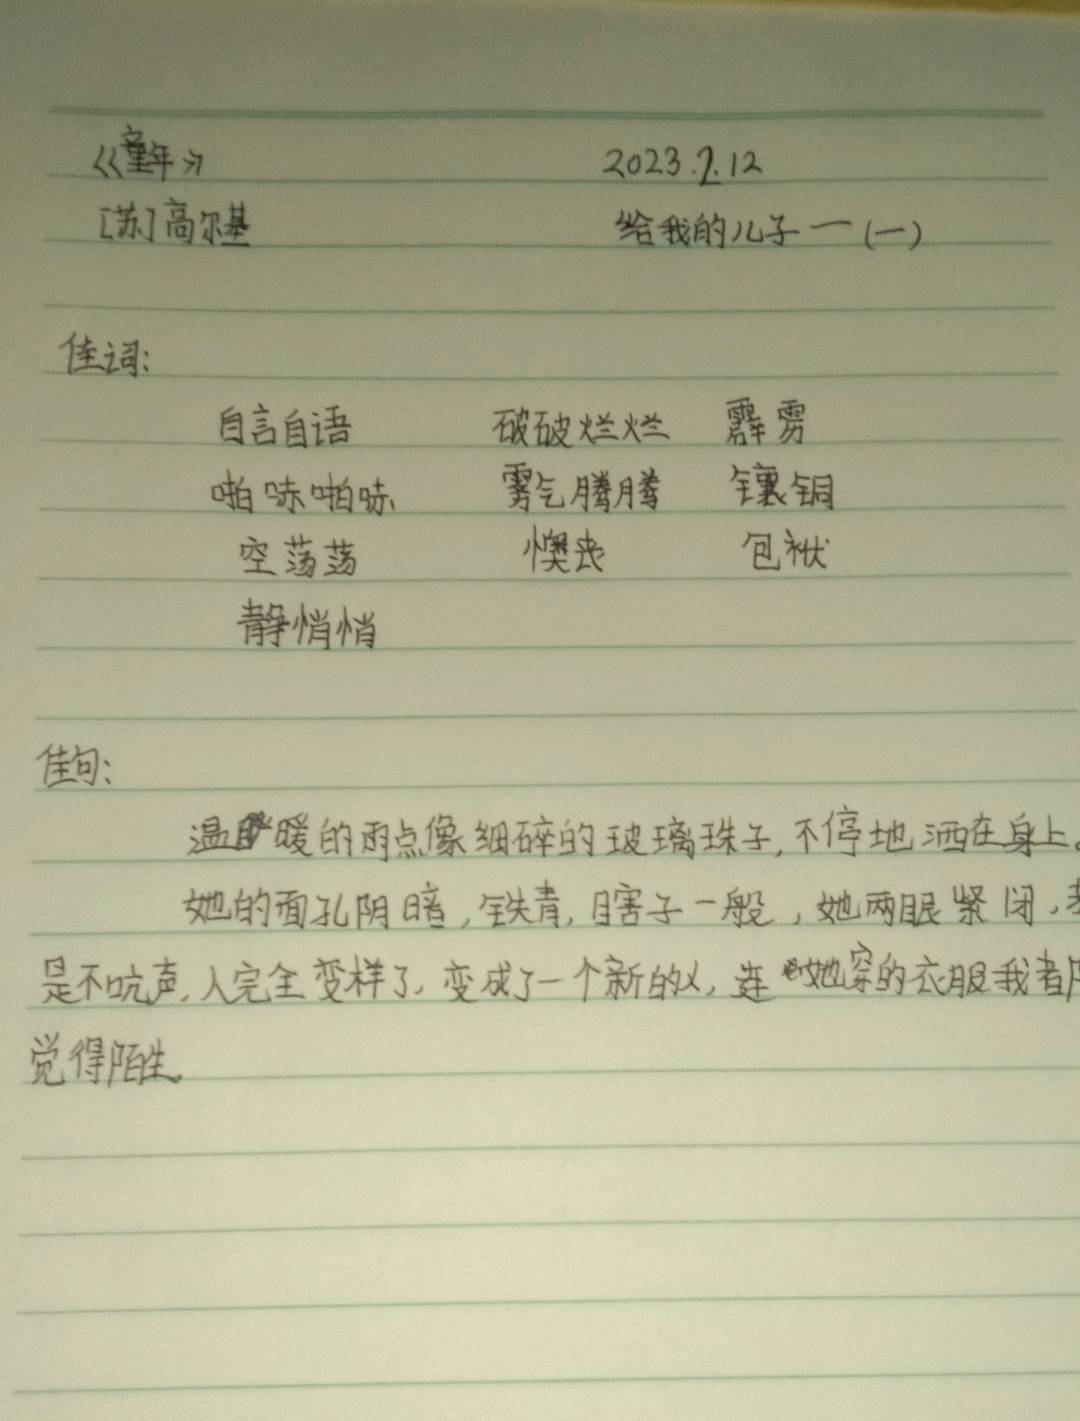 《童年》 2023.7.12
[苏]高尔基 给我的儿子一(一)
佳词:
自言自语 破破烂烂 霹雳
啪哧啪哧 雾气腾腾 镶铜
空荡荡 懊丧 包袱
静悄悄
佳句:
温暖的雨点像细碎的玻璃珠子,不停地洒在身上。
她的面孔阴暗,铁青,瞎子一般,她两眼紧闭,老
是不吭声,人完全变样了,变成了一个新的人,连她穿的衣服我都
觉得陌生。